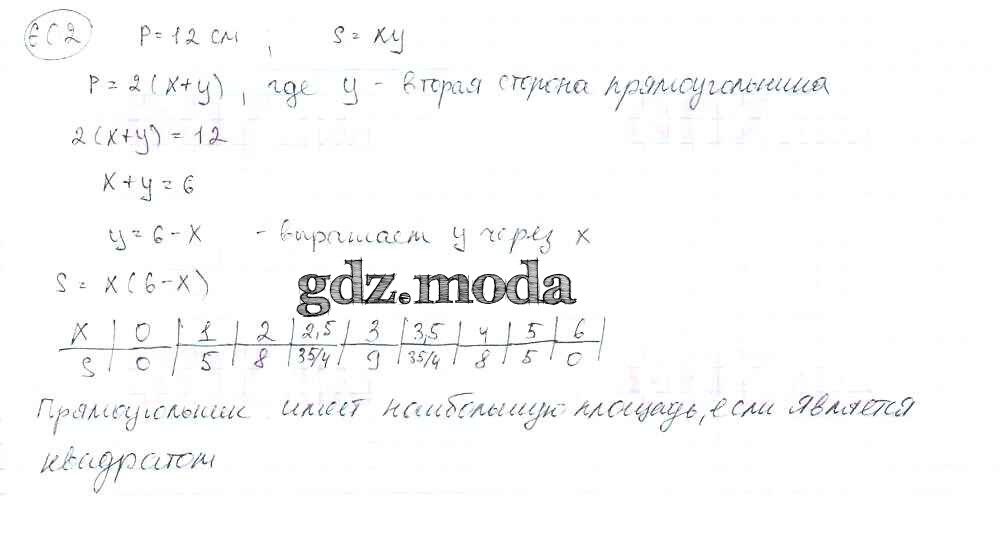 ЕС2 P = 12 см ; S = xy
P = 2(x+y), где y - вторая сторона прямоугольника
2(x+y) = 12
x+y = 6
y = 6-x - выражаем y через x
S = x(6-x)
gdz.moda
x | 0 | 1 | 2 | 2,5 | 3 | 3,5 | 4 | 5 | 6 |
S | 0 | 5 | 8 | 35/4 | 9 | 35/4 | 8 | 5 | 0 |
Прямоугольник имеет наибольшую площадь, если является
квадратом